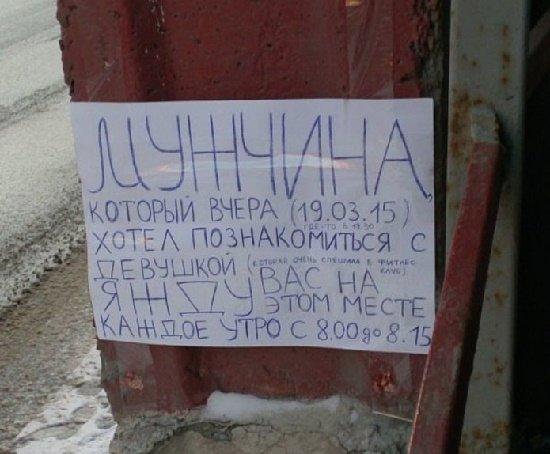 МУЖЧИНА,
КОТОРЫЙ ВЧЕРА (19.03.15)
где-то в 19.30
ХОТЕЛ ПОЗНАКОМИТЬСЯ С
ДЕВУШКОЙ (которая очень спешила в фитнес клуб)
Я ЖДУ ВАС НА
ЭТОМ МЕСТЕ
КАЖДОЕ УТРО С 8.00 до 8.15